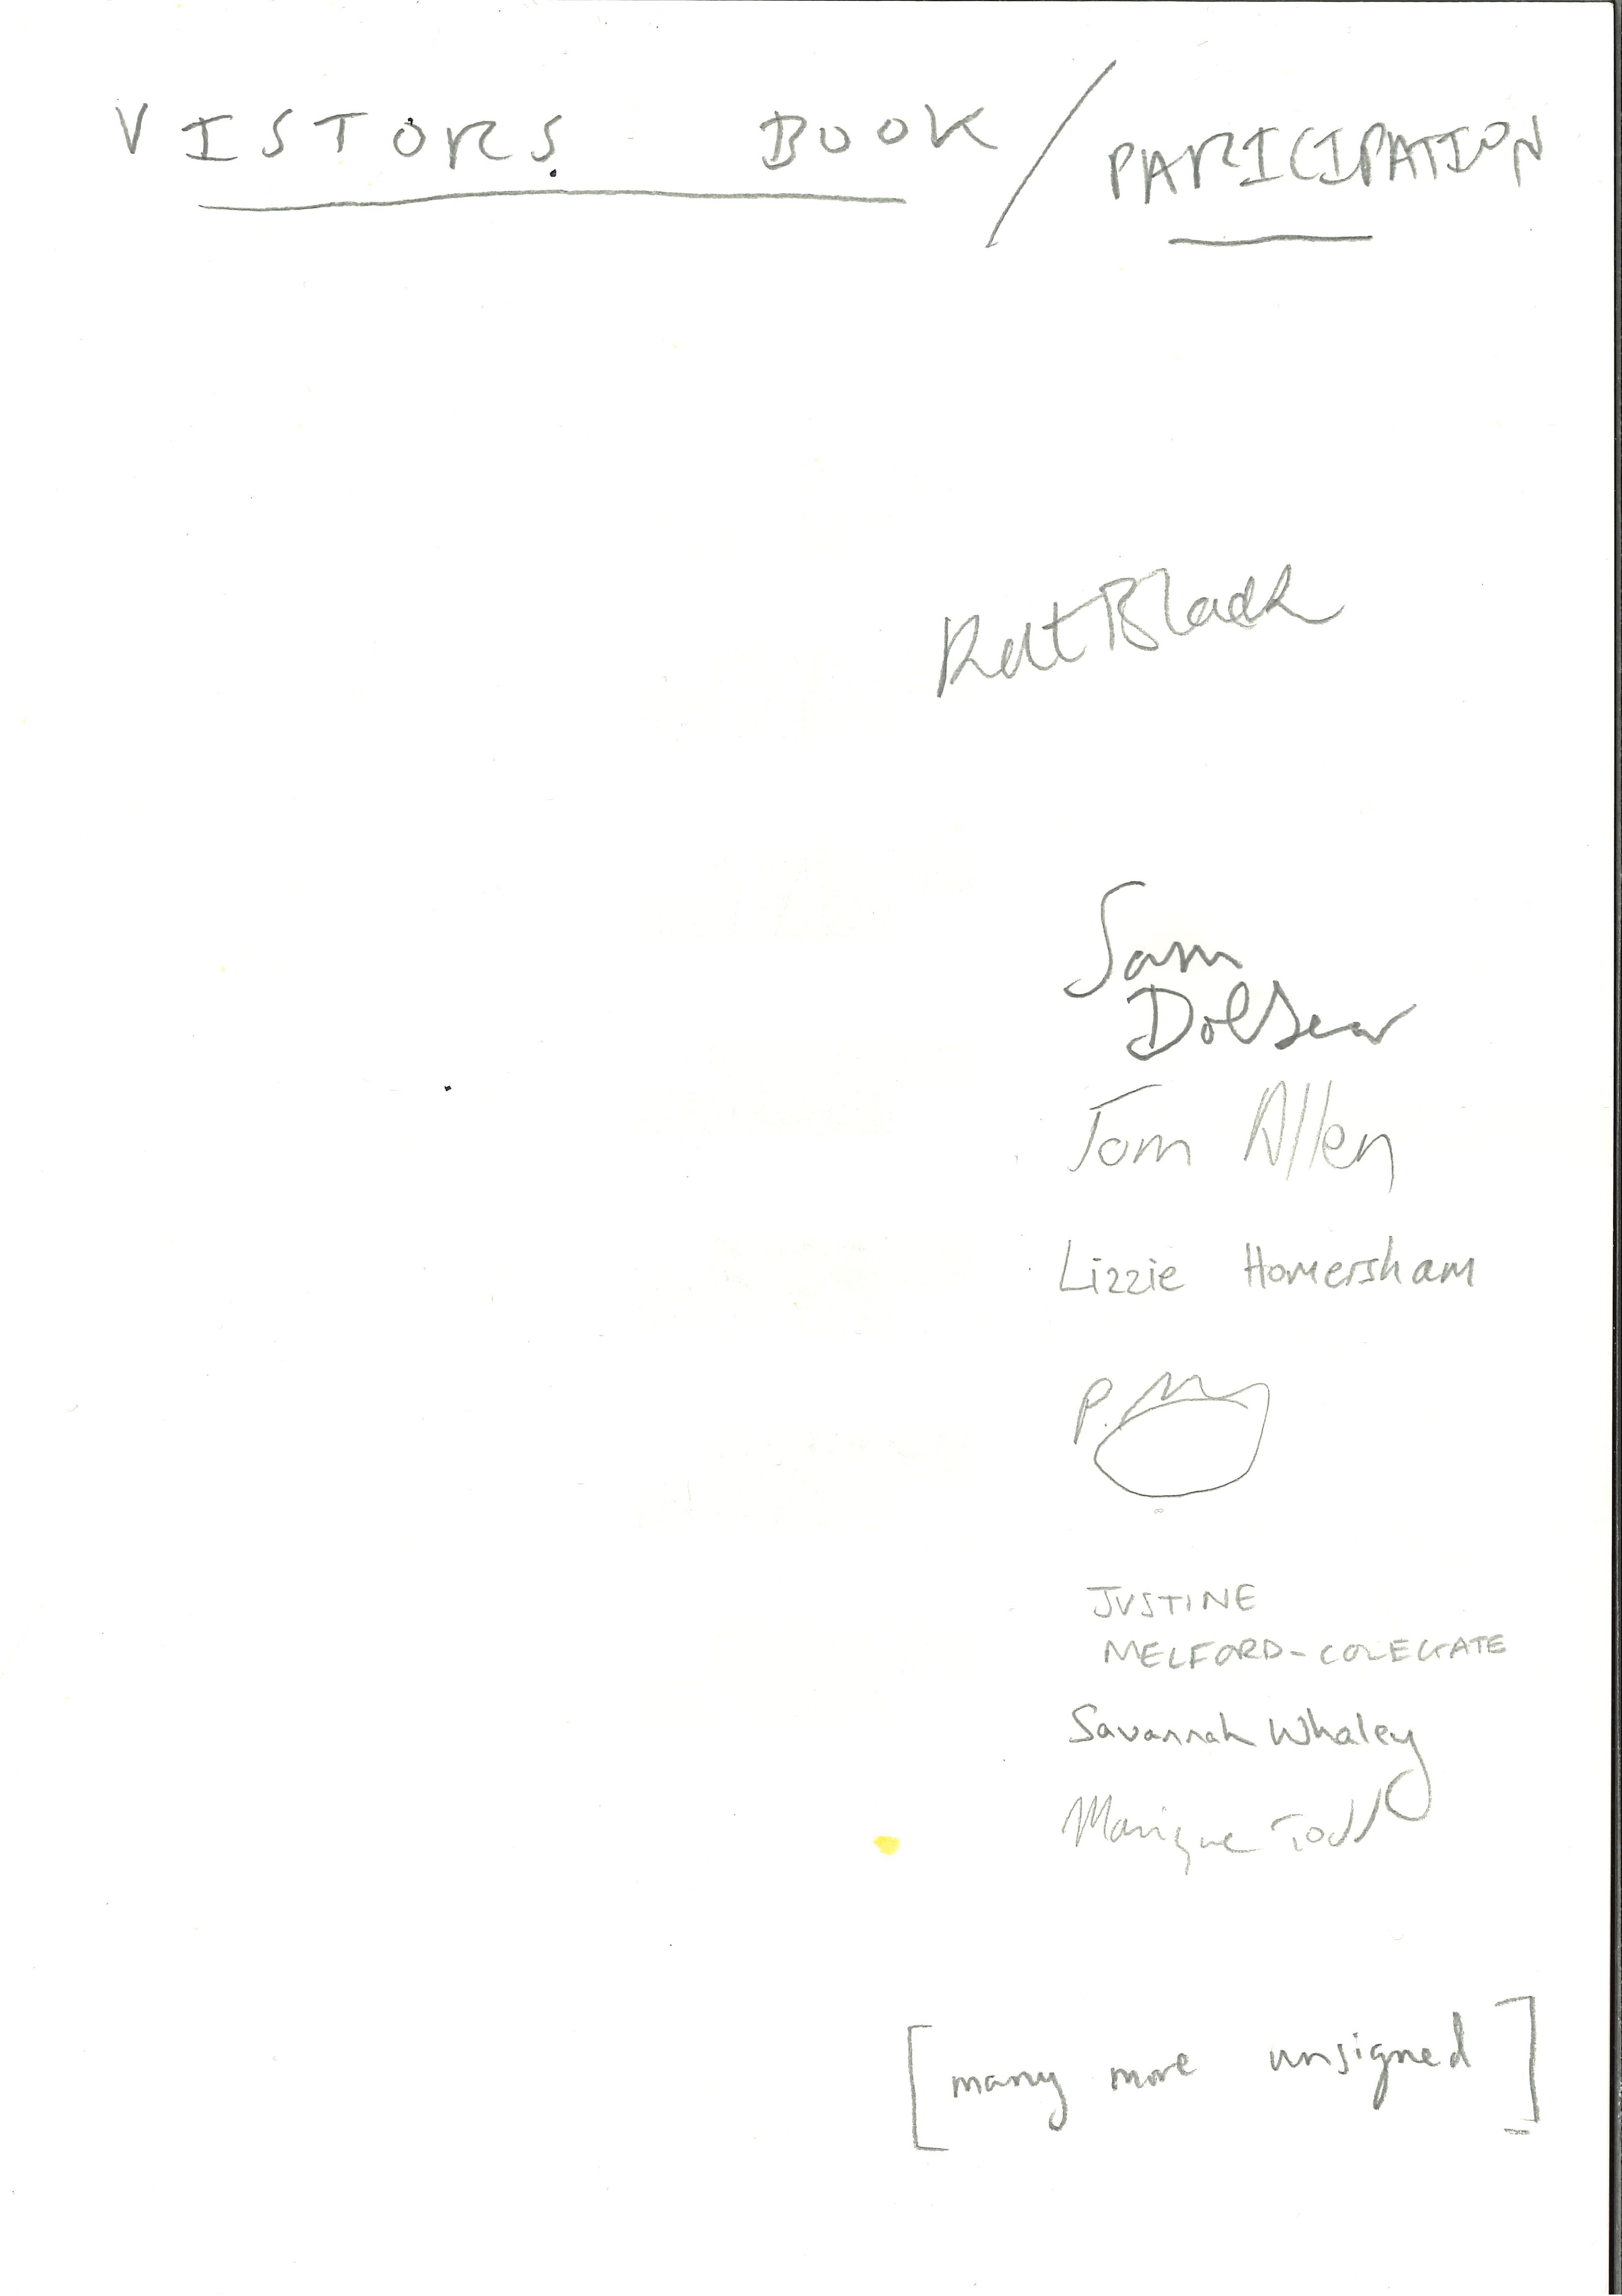 VISTORS BOOK / PARICIPATION
Kat Black
Sam
Dolbear
Tom Allen
Lizzie Homersham
P.
JUSTINE
MELFORD-COLEGATE
Savannah Whaley
Manique Todd
[many more unsigned]